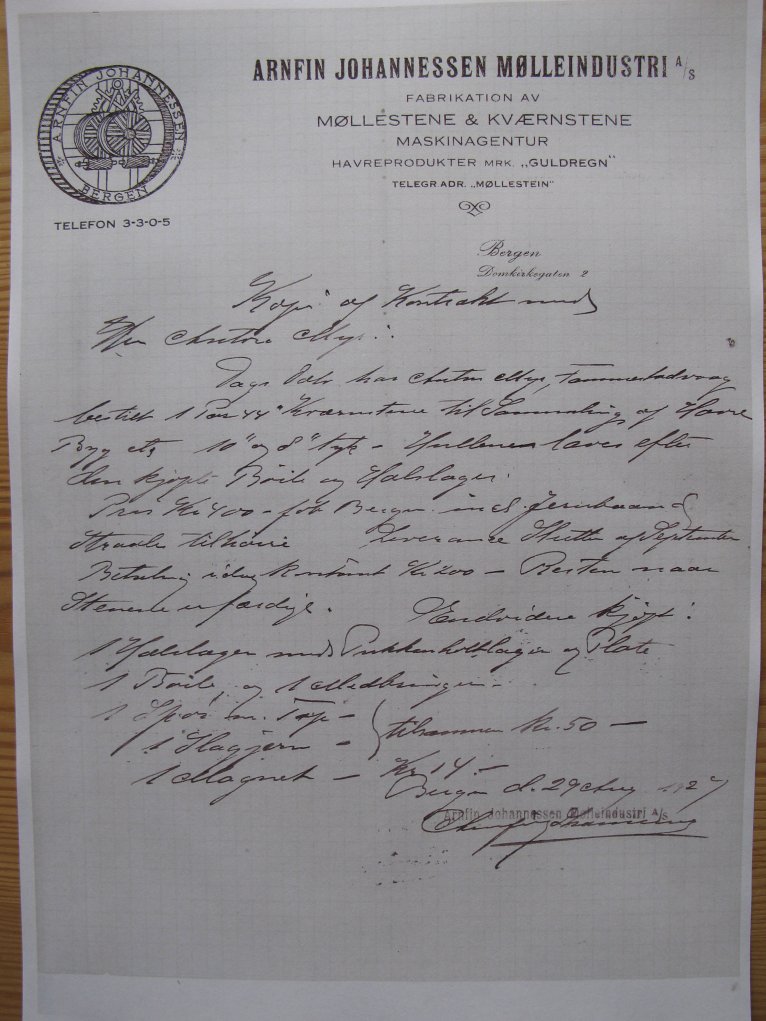 ARNFIN JOHANNESSEN
BERGEN
TELEFON 3-3-0-5
ARNFIN JOHANNESSEN MØLLEINDUSTRI A/S
FABRIKATION AV
MØLLESTENE & KVÆRNSTENE
MASKINAGENTUR
HAVREPRODUKTER MRK. „GULDREGN"
TELEGR. ADR. „MØLLESTEIN"
Bergen
Domkirkegaten 2
Kopi af Kontrakt med
Hr Anton Myr:
Dags Dato har Anton Myr, Tommestadvaag
bestilt 1 Par 44" Kværnstene til Sammaling af Havre
Byg etc 10" og 8" tyk - Hullene laves efter
den kjøpte Böile og Halslager.
Pris Kr 400 - fob Bergen incl. Jernbaand
tilhøire Leverance Slutten af September
Betaling idag kontant Kr 200 - Resten naar
Stenene er færdige. Endvidere kjøpt:
1 Halslager med Pukkenholtlager og Plate
1 Böile, og 1 Medbringer -
1 Spor m. Tap -
1 Slagjern - tilsammen kr. 50 -
1 Magnet - Kr 14.-
Bergen d. 29 Aug 1927
Arnfin Johannessen Mølleindustri A/S
Arnfin Johannessen